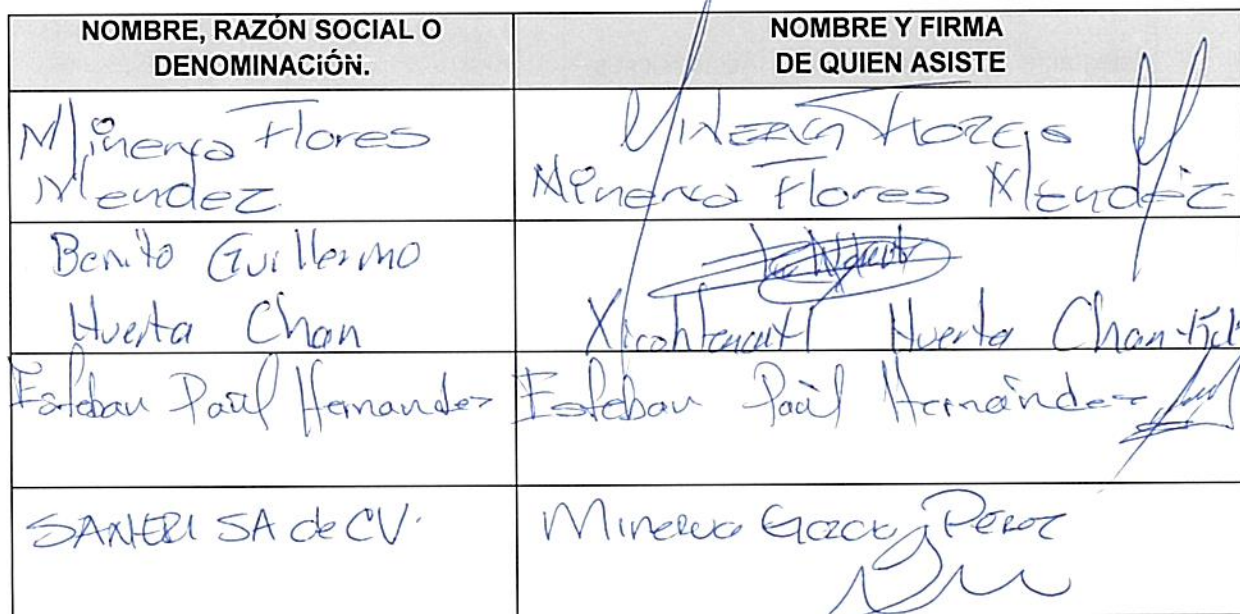 NOMBRE, RAZÓN SOCIAL O
DENOMINACIÓN.
NOMBRE Y FIRMA
DE QUIEN ASISTE
Minerva Flores
Mendez
Minerva Flores
Minerva Flores Mendez
Benito Guillermo
Huerta Chan
Xicohtencatl Huerta Chan
Esteban Paúl Hernandez
Esteban Paúl Hernández
SA de CV.
Minerva Pérez